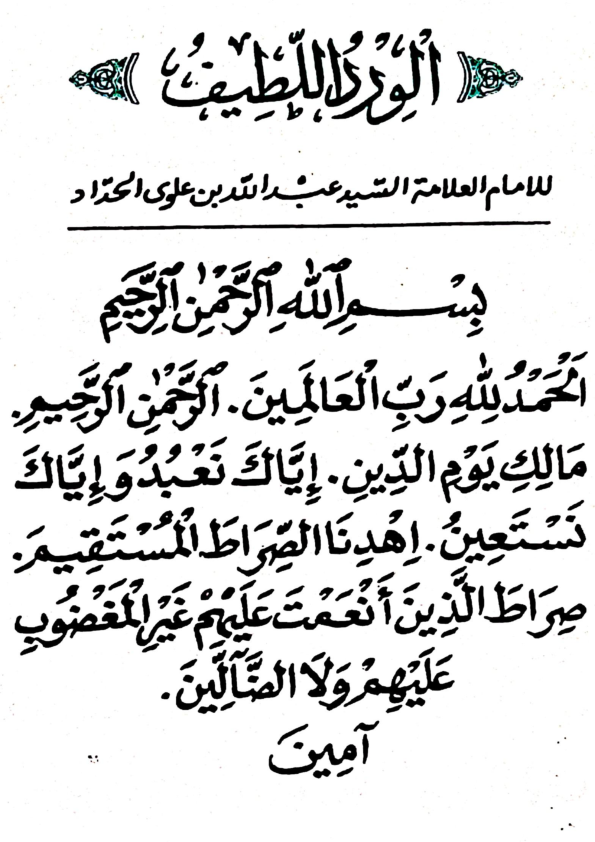 الْوِرْدُ اللَّطِيفُ
للامام العلامة السّيد عبد اللّه بن علوى الحدّاد
بِسْمِ ٱللّٰهِ ٱلرَّحْمٰنِ ٱلرَّحِيمِ
اَلْحَمْدُ لِلّٰهِ رَبِّ الْعَالَمِينَ. الرَّحْمٰنِ الرَّحِيمِ.
مَالِكِ يَوْمِ الدِّينِ. إِيَّاكَ نَعْبُدُ وَإِيَّاكَ
نَسْتَعِينُ. اِهْدِنَا الصِّرَاطَ الْمُسْتَقِيمَ.
صِرَاطَ الَّذِينَ أَنْعَمْتَ عَلَيْهِمْ غَيْرِ الْمَغْضُوبِ
عَلَيْهِمْ وَلَا الضَّآلِّينَ.
آمِينَ